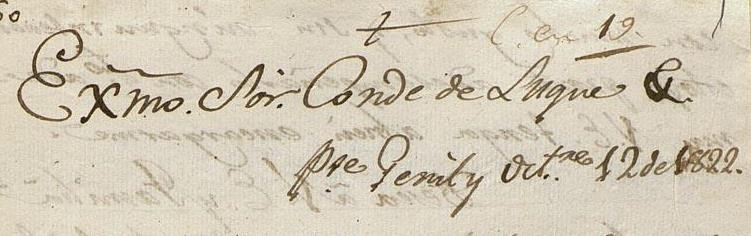 C. en 19.
Exmo. Sor. Conde de Luque &.
Pte Genil y Oct.res 12 de 1822.